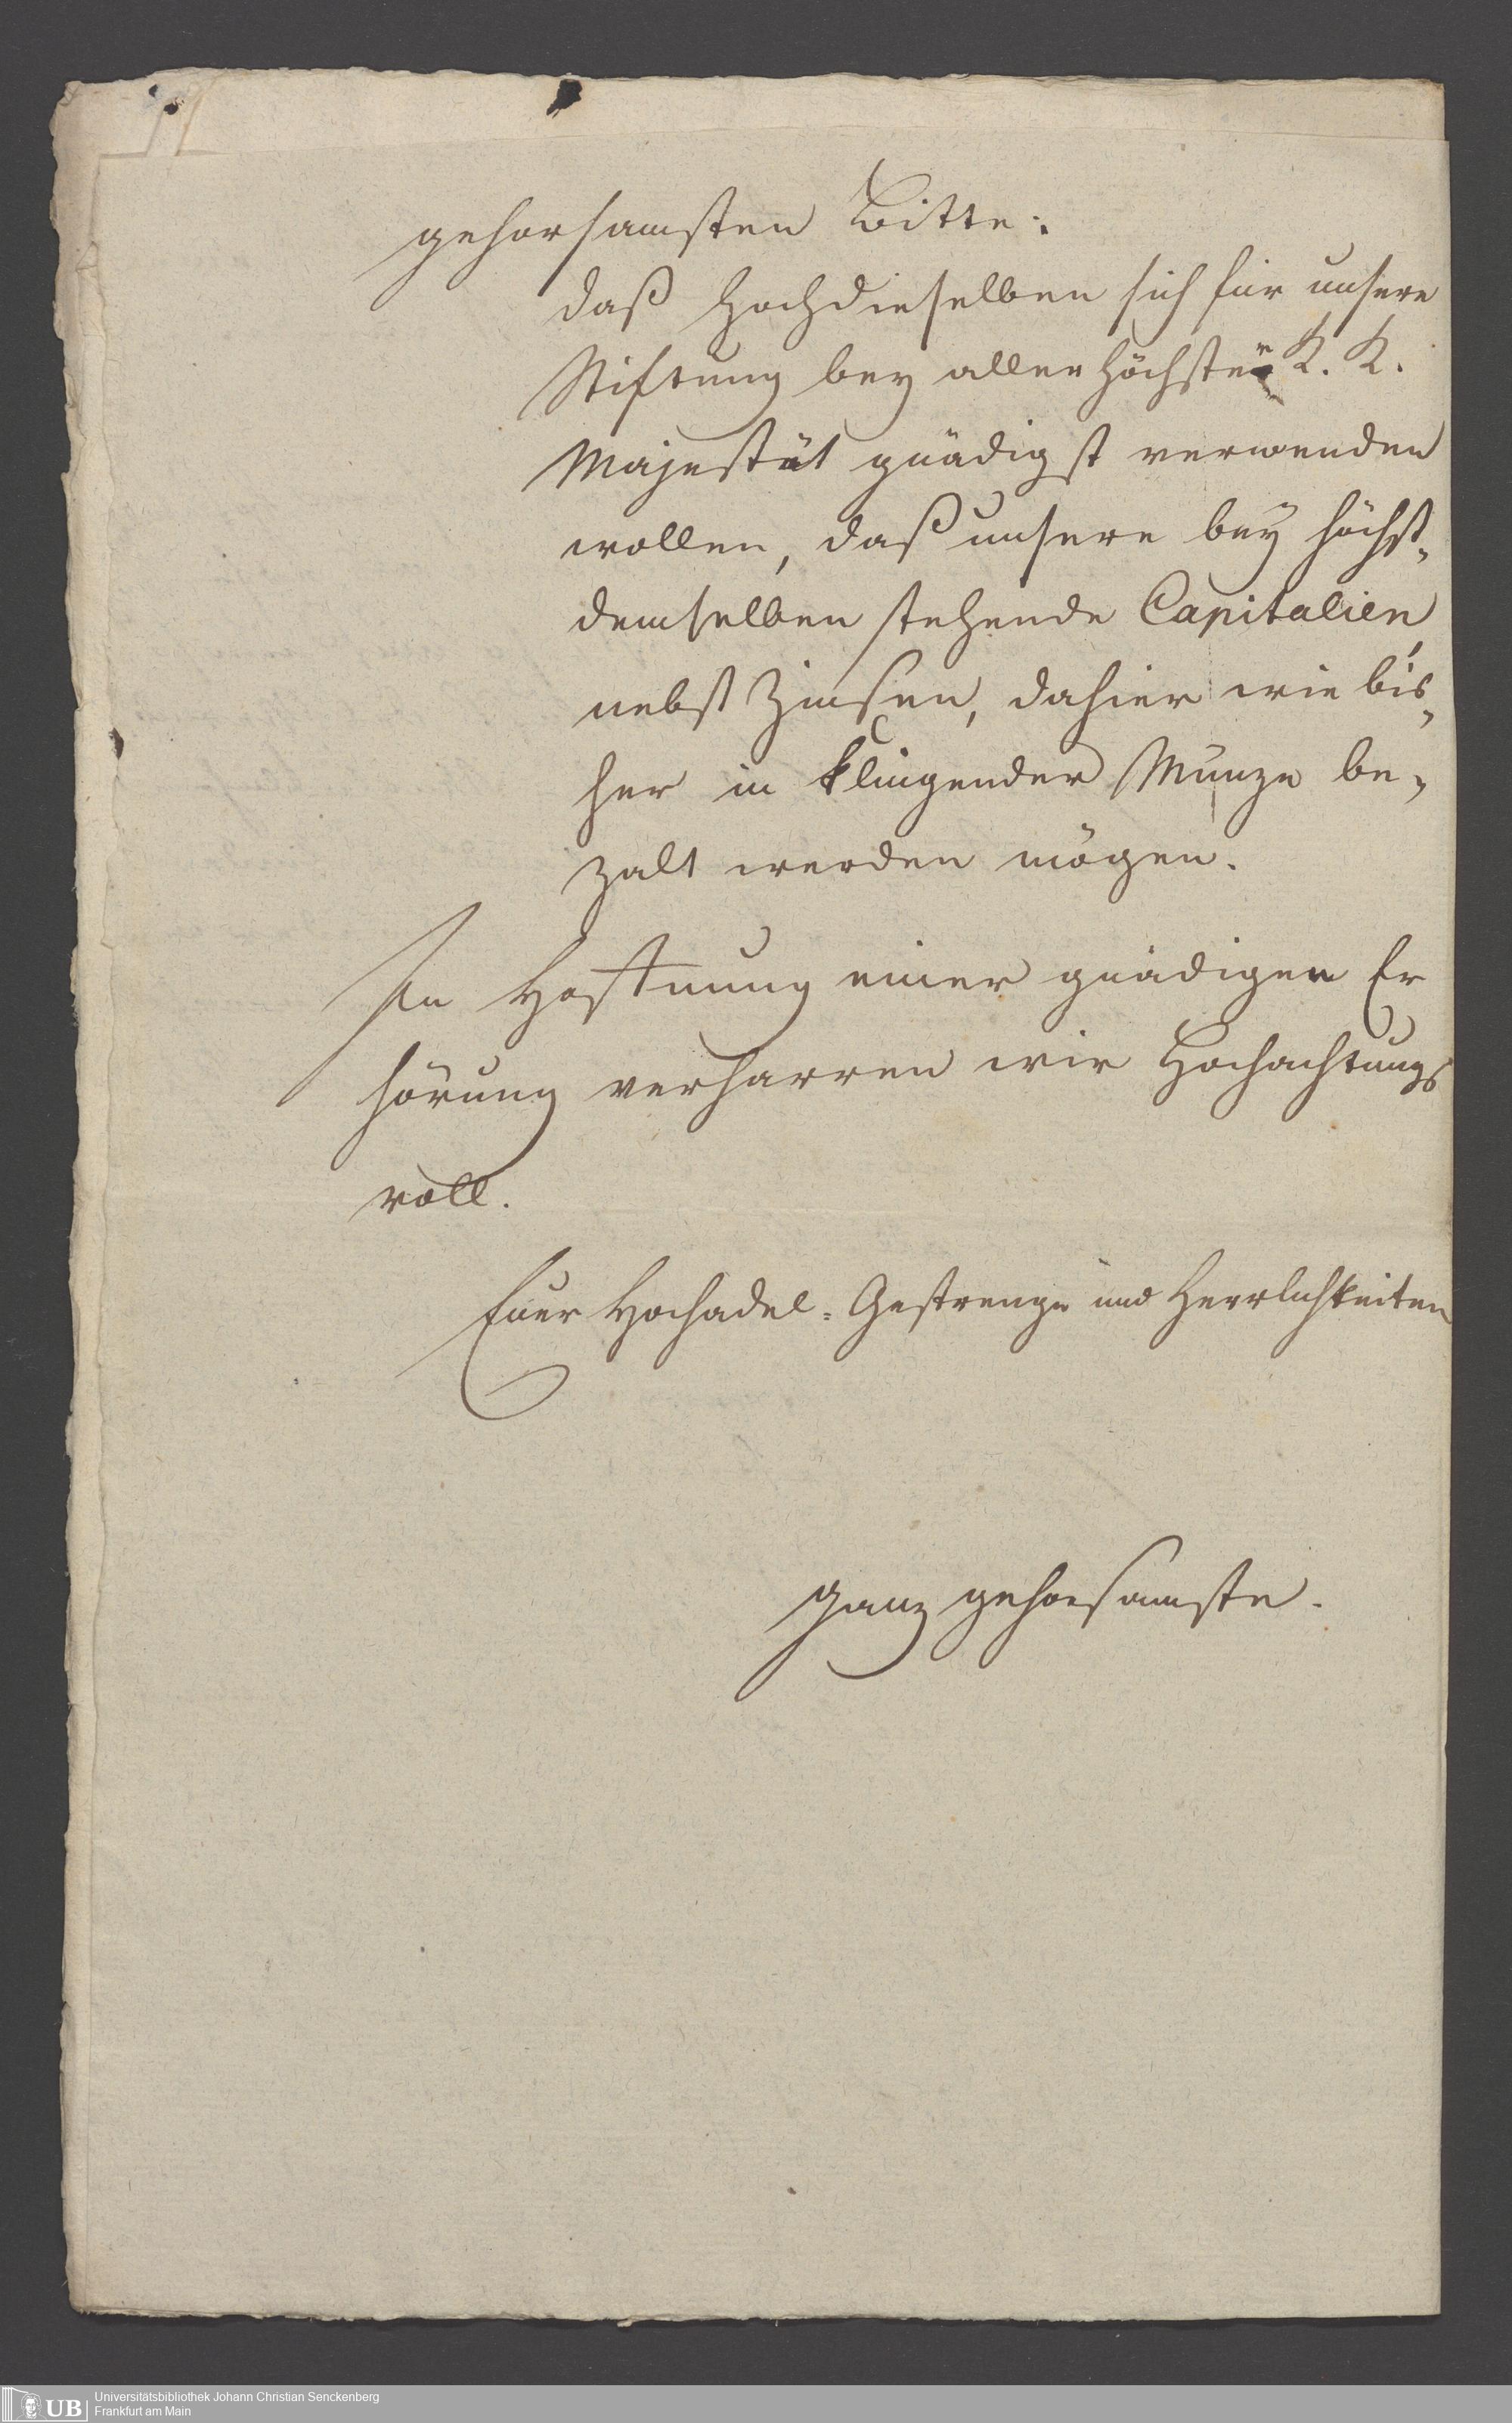 gehorsamsten Bitte:
daß Hochdieselben sich für unsere
Stiftung bey aller höchster K. K.
Majestät gnädigst verwenden
wollen, daß unsere bey höchst„
demselben stehende Capitalien
nebst Zinsen, dahier wie bis„
her in klingender Münze be„
zalt werden mögen.
In Hoffnung einer gnädigen Er
hörung verharren wir Hochachtungs
voll.
Euer Hochadel. Gestrenge und Herrlichkeiten
ganz gehorsamste.
UB
Universitätsbibliothek Johann Christian Senckenberg
Frankfurt am Main